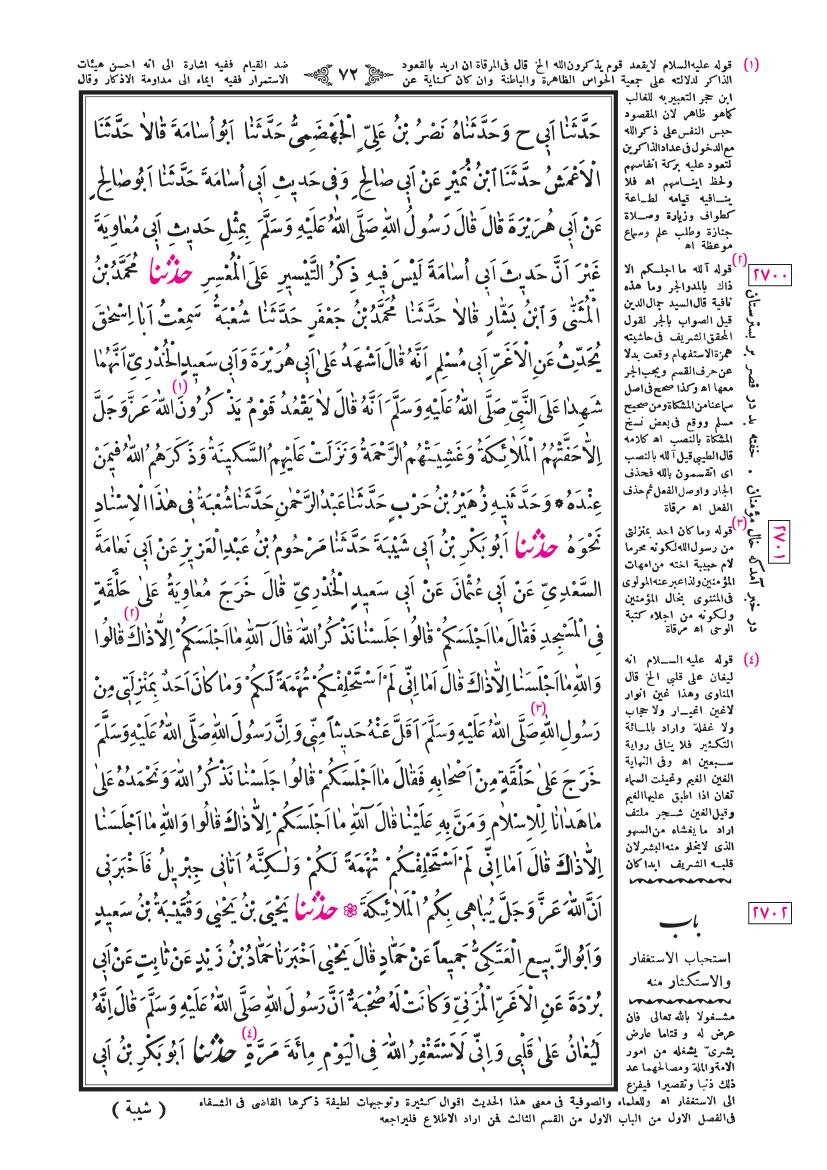 (١) قوله عليه السلام لا يقعد قوم يذكرون الله الخ قال فى المرقاة ان اريد بالقعود
ضد القيام ففيه اشارة الى انه احسن هيئات
٧٢
الذاكر لدلالته على جمعية الحواس الظاهرة والباطنة وان كان كناية عن
الاستمرار ففيه ايماء الى مداومة الاذكار وقال
ابن حجر التعبير به للغالب
كما هو ظاهر لان المقصود
حبس النفس على ذكر الله
مع الدخول فى عداد الذاكرين
لتعود عليه بركة انفاسهم
ولحظ ايناسهم اه فلا
ينافيه قيامه لطاعة
كطواف وزيارة وصلاة
جنازة وطلب علم وسماع
موعظة اه
(٢) قوله آلله ما اجلسكم الا
ذاك بالمد والجر وما هذه
نافية قال السيد جمال الدين
قيل الصواب بالجر لقول
المحقق الشريف فى حاشيته
همزة الاستفهام وقعت بدلا
عن حرف القسم ويجب الجر
معها اه وكذا صحح فى اصل
سماعنا من المشكاة ومن صحيح
مسلم ووقع فى بعض نسخ
المشكاة بالنصب اه كلامه
قال الطيبى قيل آلله بالنصب
اى اتقسمون بالله فحذف
الجار واوصل الفعل ثم حذف
الفعل اه مرقاة
(٣) قوله وما كان احد بمنزلتى
من رسول الله لكونه محرما
لام حبيبة اخته من امهات
المؤمنين ولذا عبر عنه المولوى
فى المثنوى بخال المؤمنين
ولكونه من اجلاء كتبة
الوحى اه مرقاة
(٤) قوله عليه السلام انه
ليغان على قلبى الخ قال
المناوى وهذا غين انوار
لا غين اغيار ولا حجاب
ولا غفلة واراد بالمائة
التكثير فلا ينافى رواية
سبعين اه وفى النهاية
الغين الغيم وغينت السماء
تغان اذا اطبق عليها الغيم
وقيل الغين شجر ملتف
اراد ما يغشاه من السهو
الذى لا يخلو منه البشر لان
قلبه الشريف ابدا كان
٢٧٠٠
٢٧٠١
در خبر آمد كه خال مؤمنان
٢٧٠٢
باب
استحباب الاستغفار
والاستكثار منه
مشغولا بالله تعالى فان
عرض له وقتا ما عارض
بشرىّ يشغله من امور
الامة والملة ومصالحهما عد
ذلك ذنبا وتقصيرا فيفزع
حَدَّثَنَا اَبِي ح وَحَدَّثَنَاهُ نَصْرُ بْنُ عَلِيٍّ الْجَهْضَمِيُّ حَدَّثَنَا اَبُو اُسَامَةَ قَالَا حَدَّثَنَا
الْاَعْمَشُ حَدَّثَنَا ابْنُ نُمَيْرٍ عَنْ اَبِي صَالِحٍ وَفِي حَديثِ اَبِي اُسَامَةَ حَدَّثَنَا اَبُو صَالِحٍ
عَنْ اَبِي هُرَيْرَةَ قَالَ قَالَ رَسُولُ اللهِ صَلَّى اللهُ عَلَيْهِ وَسَلَّمَ بِمِثْلِ حَديثِ اَبِي مُعَاوِيَةَ
غَيْرَ اَنَّ حَديثَ اَبِي اُسَامَةَ لَيْسَ فِيهِ ذِكْرُ التَّيْسِيرِ عَلَى الْمُعْسِرِ حَدَّثَنَا مُحَمَّدُ بْنُ
الْمُثَنّٰى وَابْنُ بَشَّارٍ قَالَا حَدَّثَنَا مُحَمَّدُ بْنُ جَعْفَرٍ حَدَّثَنَا شُعْبَةُ سَمِعْتُ اَبَا اِسْحٰقَ
يُحَدِّثُ عَنِ الْاَغَرِّ اَبِي مُسْلِمٍ اَنَّهُ قَالَ اَشْهَدُ عَلٰى اَبِي هُرَيْرَةَ وَاَبِي سَعِيدٍ الْخُدْرِيِّ اَنَّهُمَا
شَهِدَا عَلَى النَّبِيِّ صَلَّى اللهُ عَلَيْهِ وَسَلَّمَ اَنَّهُ قَالَ لَا يَقْعُدُ قَوْمٌ يَذْكُرُونَ (١) اللهَ عَزَّ وَجَلَّ
اِلَّا حَفَّتْهُمُ الْمَلَائِكَةُ وَغَشِيَتْهُمُ الرَّحْمَةُ وَنَزَلَتْ عَلَيْهِمُ السَّكِينَةُ وَذَكَرَهُمُ اللهُ فِيمَنْ
عِنْدَهُ * وَحَدَّثَنِيهِ زُهَيْرُ بْنُ حَرْبٍ حَدَّثَنَا عَبْدُ الرَّحْمٰنِ حَدَّثَنَا شُعْبَةُ فِي هٰذَا الْاِسْنَادِ
نَحْوَهُ حَدَّثَنَا اَبُو بَكْرِ بْنُ اَبِي شَيْبَةَ حَدَّثَنَا مَرْحُومُ بْنُ عَبْدِ الْعَزِيزِ عَنْ اَبِي نَعَامَةَ
السَّعْدِيِّ عَنْ اَبِي عُثْمَانَ عَنْ اَبِي سَعِيدٍ الْخُدْرِيِّ قَالَ خَرَجَ مُعَاوِيَةُ عَلٰى حَلْقَةٍ
فِي الْمَسْجِدِ فَقَالَ مَا اَجْلَسَكُمْ قَالُوا جَلَسْنَا نَذْكُرُ اللهَ قَالَ آللهِ مَا اَجْلَسَكُمْ اِلَّا ذَاكَ (٢) قَالُوا
وَاللهِ مَا اَجْلَسَنَا اِلَّا ذَاكَ قَالَ اَمَا اِنِّي لَمْ اَسْتَحْلِفْكُمْ تُهْمَةً لَكُمْ وَمَا كَانَ اَحَدٌ بِمَنْزِلَتِي مِنْ
رَسُولِ اللهِ (٣) صَلَّى اللهُ عَلَيْهِ وَسَلَّمَ اَقَلَّ عَنْهُ حَدِيثاً مِنِّي وَاِنَّ رَسُولَ اللهِ صَلَّى اللهُ عَلَيْهِ وَسَلَّمَ
خَرَجَ عَلٰى حَلْقَةٍ مِنْ اَصْحَابِهِ فَقَالَ مَا اَجْلَسَكُمْ قَالُوا جَلَسْنَا نَذْكُرُ اللهَ وَنَحْمَدُهُ عَلٰى
مَا هَدَانَا لِلْاِسْلَامِ وَمَنَّ بِهِ عَلَيْنَا قَالَ آللهِ مَا اَجْلَسَكُمْ اِلَّا ذَاكَ قَالُوا وَاللهِ مَا اَجْلَسَنَا
اِلَّا ذَاكَ قَالَ اَمَا اِنِّي لَمْ اَسْتَحْلِفْكُمْ تُهْمَةً لَكُمْ وَلٰكِنَّهُ اَتَانِي جِبْرِيلُ فَاَخْبَرَنِي
اَنَّ اللهَ عَزَّ وَجَلَّ يُبَاهِي بِكُمُ الْمَلَائِكَةَ * حَدَّثَنَا يَحْيَى بْنُ يَحْيٰى وَقُتَيْبَةُ بْنُ سَعِيدٍ
وَاَبُو الرَّبِيعِ الْعَتَكِيُّ جَمِيعاً عَنْ حَمَّادٍ قَالَ يَحْيٰى اَخْبَرَنَا حَمَّادُ بْنُ زَيْدٍ عَنْ ثَابِتٍ عَنْ اَبِي
بُرْدَةَ عَنِ الْاَغَرِّ الْمُزَنِيِّ وَكَانَتْ لَهُ صُحْبَةٌ اَنَّ رَسُولَ اللهِ صَلَّى اللهُ عَلَيْهِ وَسَلَّمَ قَالَ اِنَّهُ
لَيُغَانُ عَلٰى قَلْبِي وَاِنِّي لَاَسْتَغْفِرُ اللهَ فِي الْيَوْمِ مِائَةَ مَرَّةٍ (٤) حَدَّثَنَا اَبُو بَكْرِ بْنُ اَبِي
الى الاستغفار اه وللعلماء والصوفية فى معنى هذا الحديث اقوال كثيرة وتوجيهات لطيفة ذكرها القاضى فى الشفاء
فى الفصل الاول من الباب الاول من القسم الثالث فمن اراد الاطلاع فليراجعه
( شيبة )